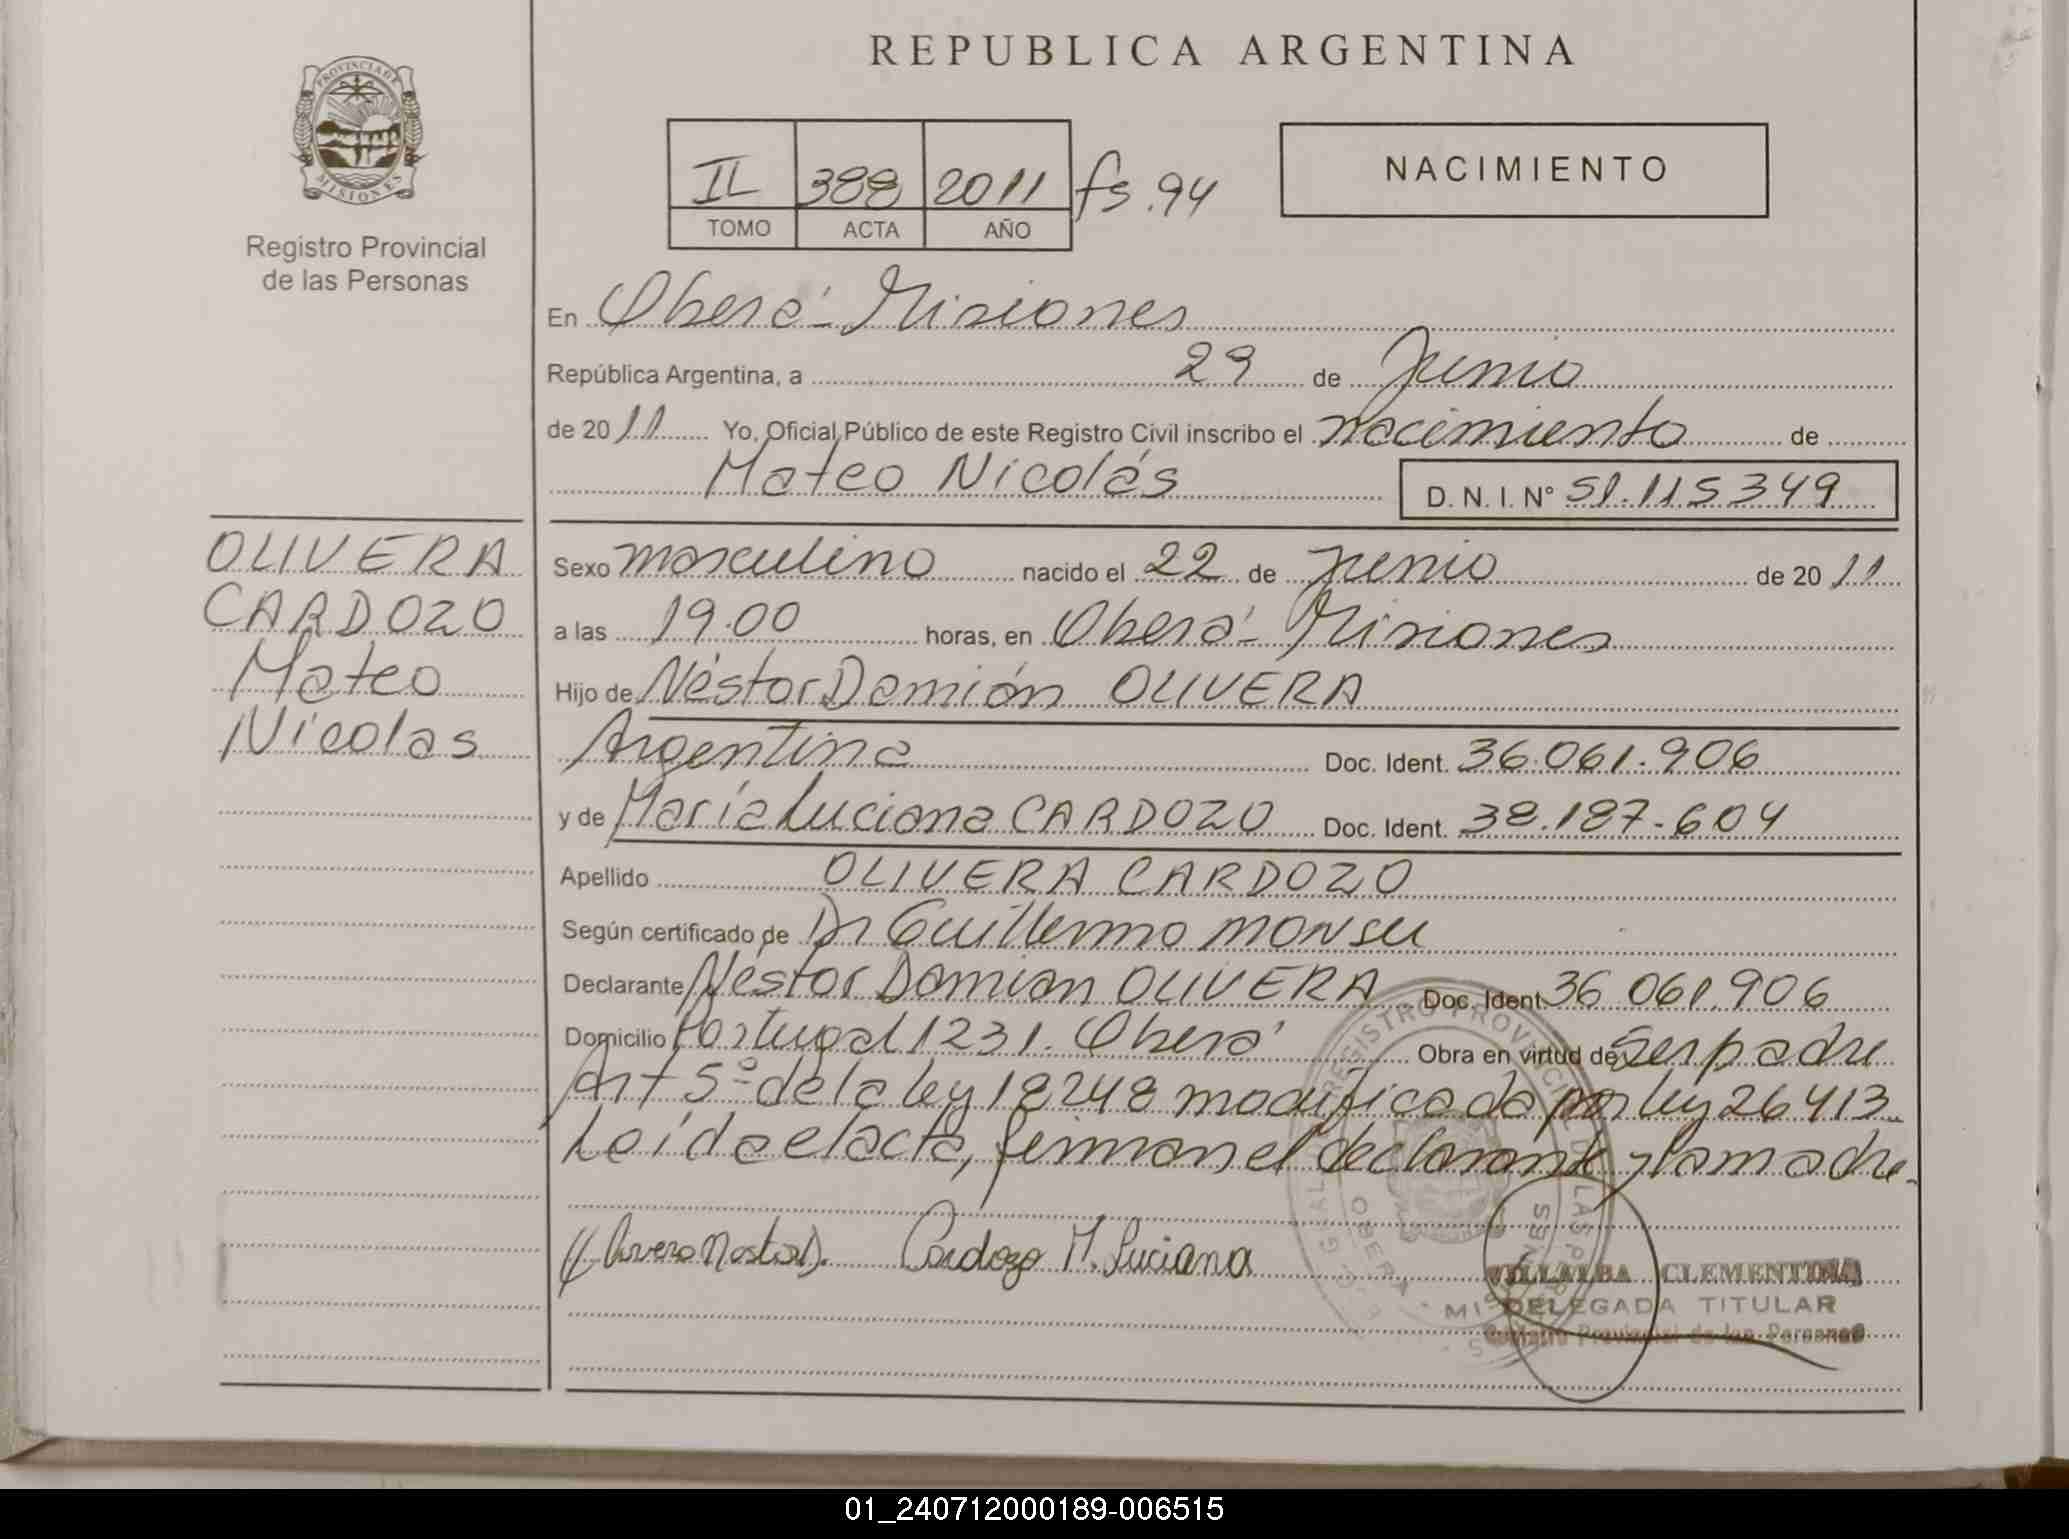 REPUBLICA ARGENTINA
PROVINCIA DE
MISIONES
Registro Provincial
de las Personas
II 388 2011 fs. 94
TOMO ACTA AÑO
NACIMIENTO
En Oberá - Misiones
República Argentina, a 29 de Junio
de 2011 Yo, Oficial Público de este Registro Civil inscribo el nacimiento de
Mateo Nicolás D. N. I. N° 51.115349
OLIVERA
CARDOZO
Mateo
Nicolas
Sexo masculino nacido el 22 de Junio de 2011
a las 19.00 horas, en Oberá - Misiones
Hijo de Néstor Damián OLIVERA
Argentina Doc. Ident. 36.061.906
y de María Luciana CARDOZO Doc. Ident. 38.187.604
Apellido OLIVERA CARDOZO
Según certificado de Dr Guillermo MONSU
Declarante Néstor Damian OLIVERA Doc. Ident. 36 061.906
Domicilio Portugal 1231. Oberá Obra en virtud de Ser padre
Art 5º de la ley 18248 modificada por ley 26413
Leída el acta, firman el declarante y la madre.
Olivera Nestor D. Cardozo M. Luciana
VILLALBA CLEMENTINA
DELEGADA TITULAR
Registro Provincial de las Personas
01_240712000189-006515